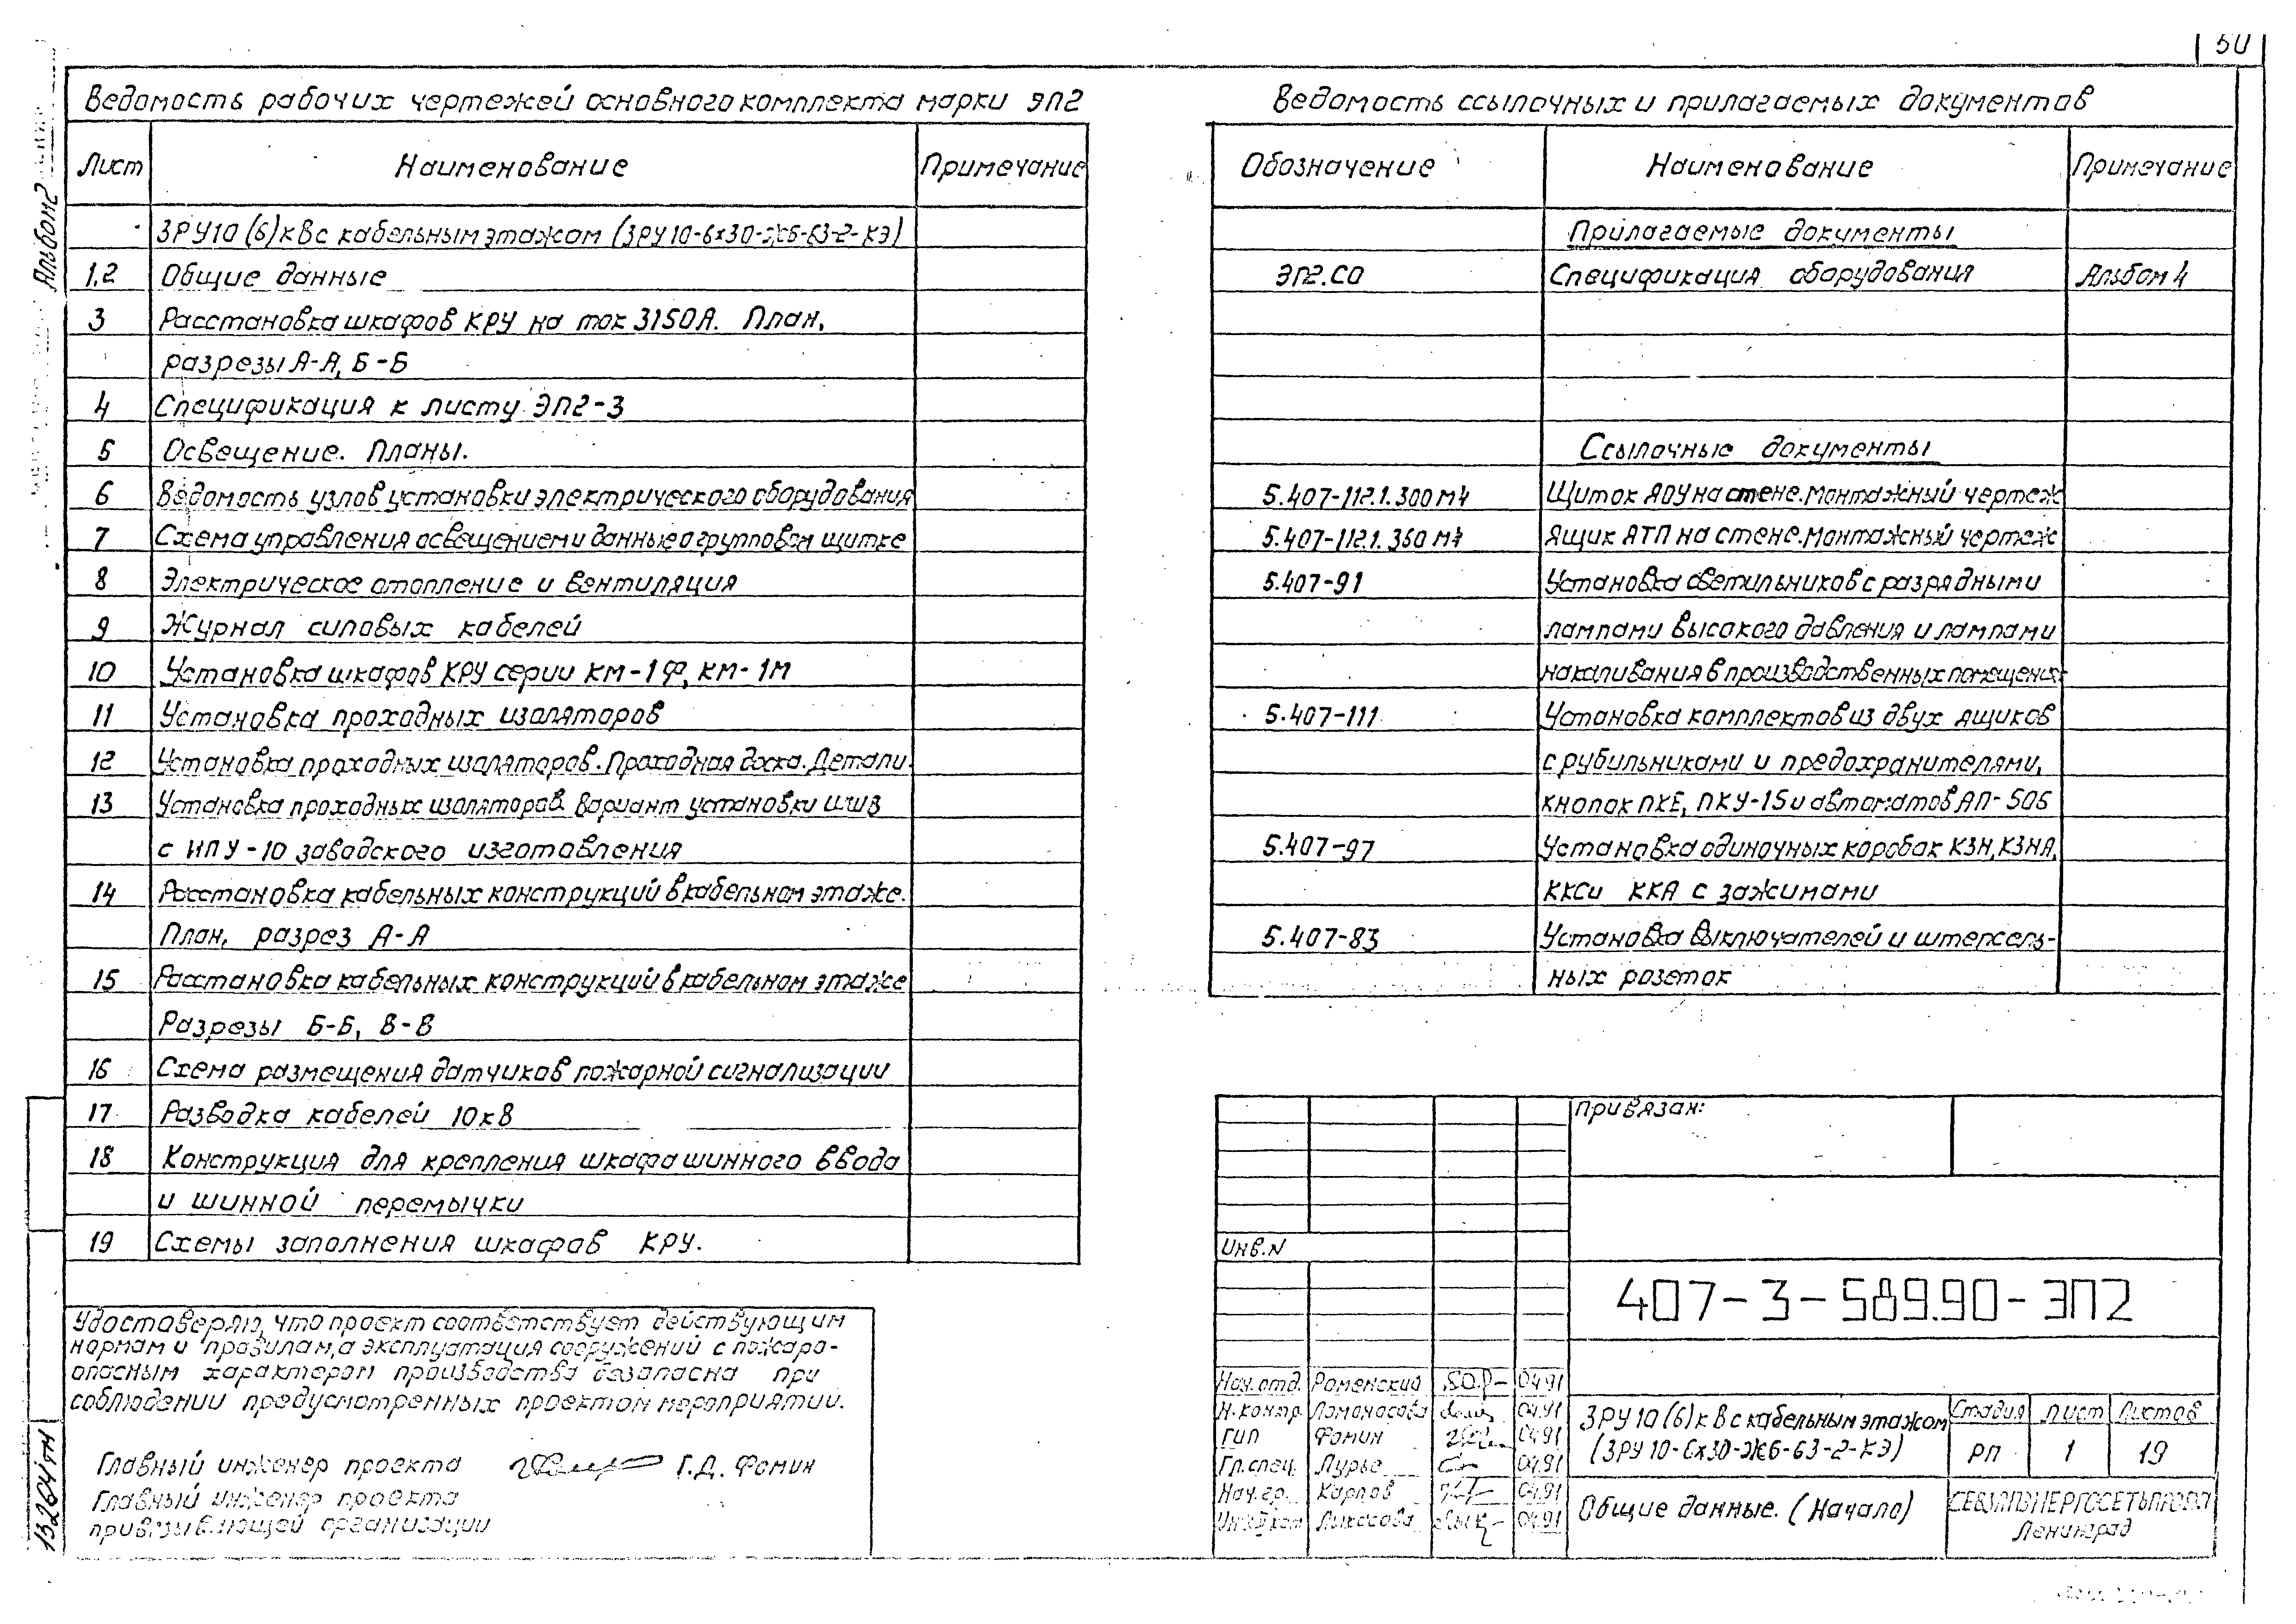 50
Альбом 2
Ведомость рабочих чертежей основного комплекта марки ЭП2
Лист Наименование Примечание
ЗРУ 10 (6) кВ с кабельным этажом (ЗРУ 10-6х30-Ж6-63-2-КЭ)
1,2 Общие данные
3 Расстановка шкафов КРУ на ток 3150А. План,
разрезы А-А, Б-Б
4 Спецификация к листу ЭП2-3
5 Освещение. Планы.
6 Ведомость узлов установки электрического оборудования
7 Схема управления освещением и данные о групповом щитке
8 Электрическое отопление и вентиляция
9 Журнал силовых кабелей
10 Установка шкафов КРУ серии КМ-1Ф, КМ-1М
11 Установка проходных изоляторов
12 Установка проходных изоляторов. Проходная доска. Детали.
13 Установка проходных изоляторов. Вариант установки ШШВ
с ИПУ-10 заводского изготовления
14 Расстановка кабельных конструкций в кабельном этаже.
План, разрез А-А
15 Расстановка кабельных конструкций в кабельном этаже
Разрезы Б-Б, В-В
16 Схема размещения датчиков пожарной сигнализации
17 Разводка кабелей 10кВ
18 Конструкция для крепления шкафа шинного ввода
и шинной перемычки
19 Схемы заполнения шкафов КРУ.
Удостоверяю, что проект соответствует действующим
нормам и правилам, а эксплуатация сооружений с пожаро-
опасным характером производства безопасна при
соблюдении предусмотренных проектом мероприятий.
Главный инженер проекта Г.Д. Фомин
Главный инженер проекта
привязывающей организации
13264тм
Ведомость ссылочных и прилагаемых документов
Обозначение Наименование Примечание
Прилагаемые документы
ЭП2.СО Спецификация оборудования Альбом 4
Ссылочные документы
5.407-112.1.300 МЧ Щиток ЯОУ на стене. Монтажный чертеж
5.407-112.1.360 МЧ Ящик ЯТП на стене. Монтажный чертеж
5.407-91 Установка светильников с разрядными
лампами высокого давления и лампами
накаливания в производственных помещениях
5.407-111 Установка комплектов из двух ящиков
с рубильниками и предохранителями,
кнопок ПКЕ, ПКУ-15 и автоматов АП-50Б
5.407-97 Установка одиночных коробок КЗН, КЗНА,
ККС и ККА с зажимами
5.407-83 Установка выключателей и штепсель-
ных розеток
Привязан:
Инв. N
407-3-589.90-ЭП2
Нач. отд. Роменский 04.91
Н. контр. Ломоносова 04.91
ГИП Фомин 04.91
Гл. спец. Лурье 04.91
Нач. гр. Карпов 04.91
04.91
ЗРУ 10 (6) кВ с кабельным этажом
(ЗРУ 10-6х30-Ж6-63-2-КЭ)
Стадия Лист Листов
РП 1 19
Общие данные. (Начало)
СЕВЗАПЭНЕРГОСЕТЬПРОЕКТ
Ленинград